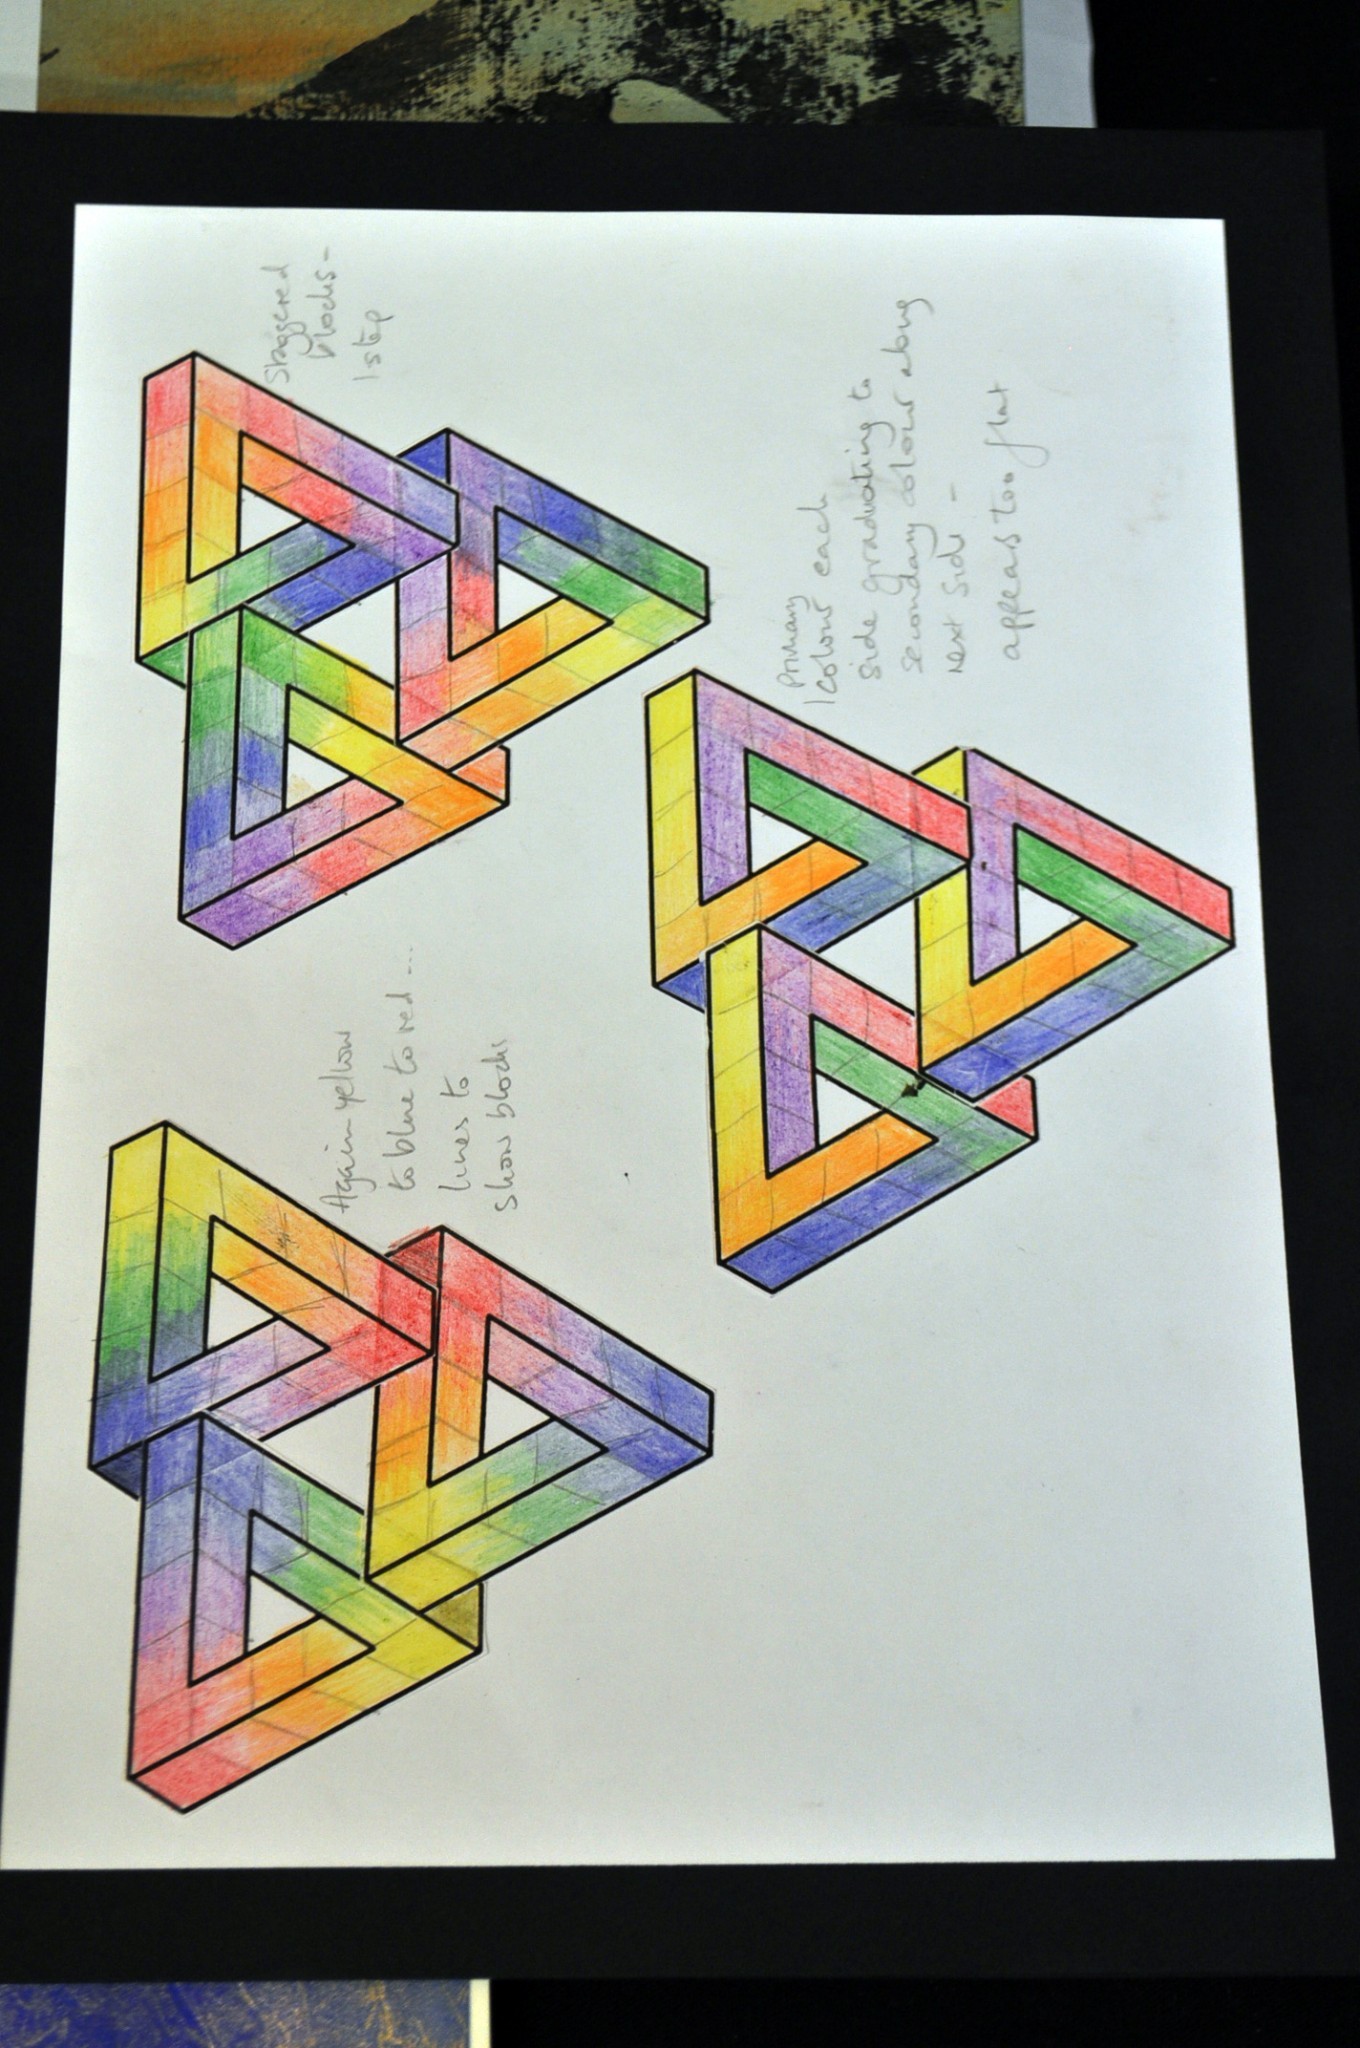 Again yellow
to blue to red ...
lines to
show blocks
Staggered
blocks -
1 step
Primary
colour each
side graduating to
secondary colour along
next side -
appears too flat